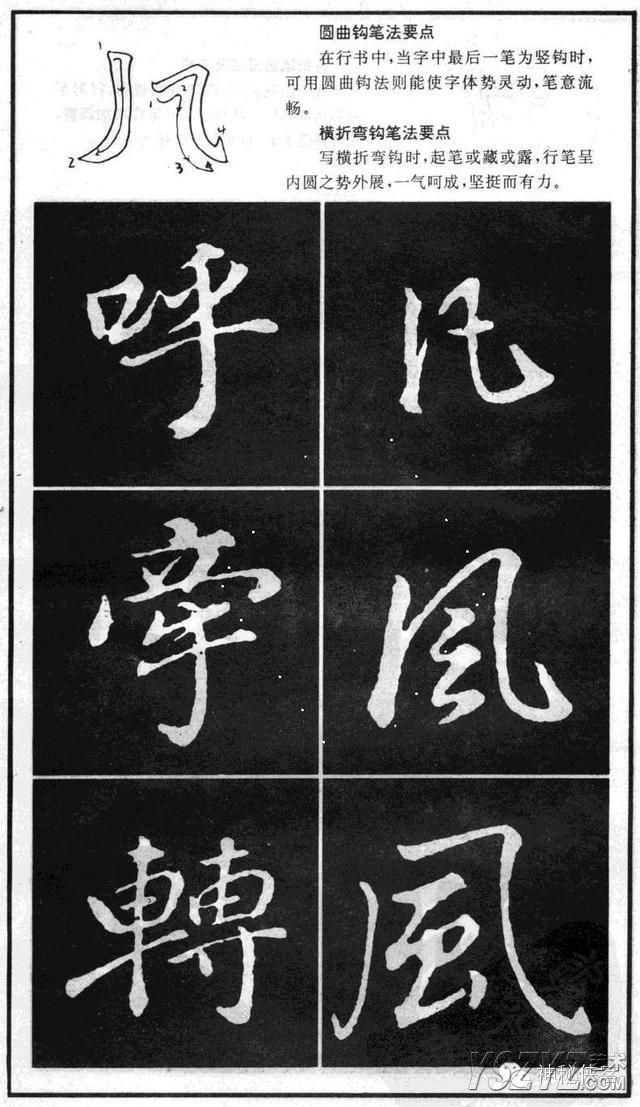 圆曲钩笔法要点
在行书中，当字中最后一笔为竖钩时，
可用圆曲钩法则能使字体势灵动，笔意流
畅。
横折弯钩笔法要点
写横折弯钩时，起笔或藏或露，行笔呈
内圆之势外展，一气呵成，坚挺而有力。
呼 凡
牽 風
轉 風